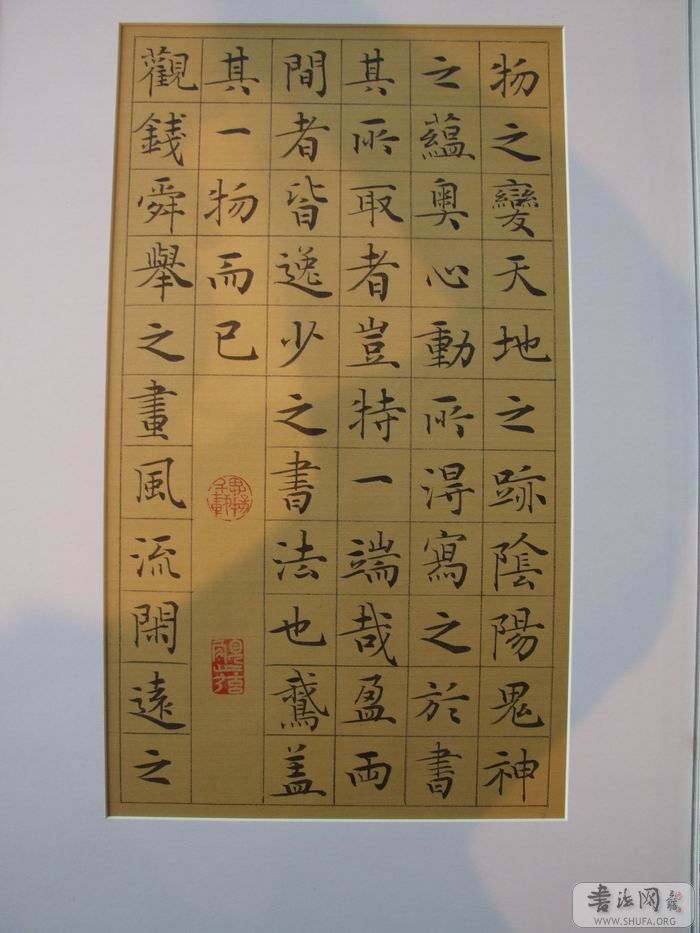 物之變天地之跡陰陽鬼神
之蘊奧心動所得寫之於書
其所取者豈特一端哉盈兩
間者皆逸少之書法也鵞蓋
其一物而已
觀錢舜舉之畫風流閑遠之
書法网
WWW.SHUFA.ORG